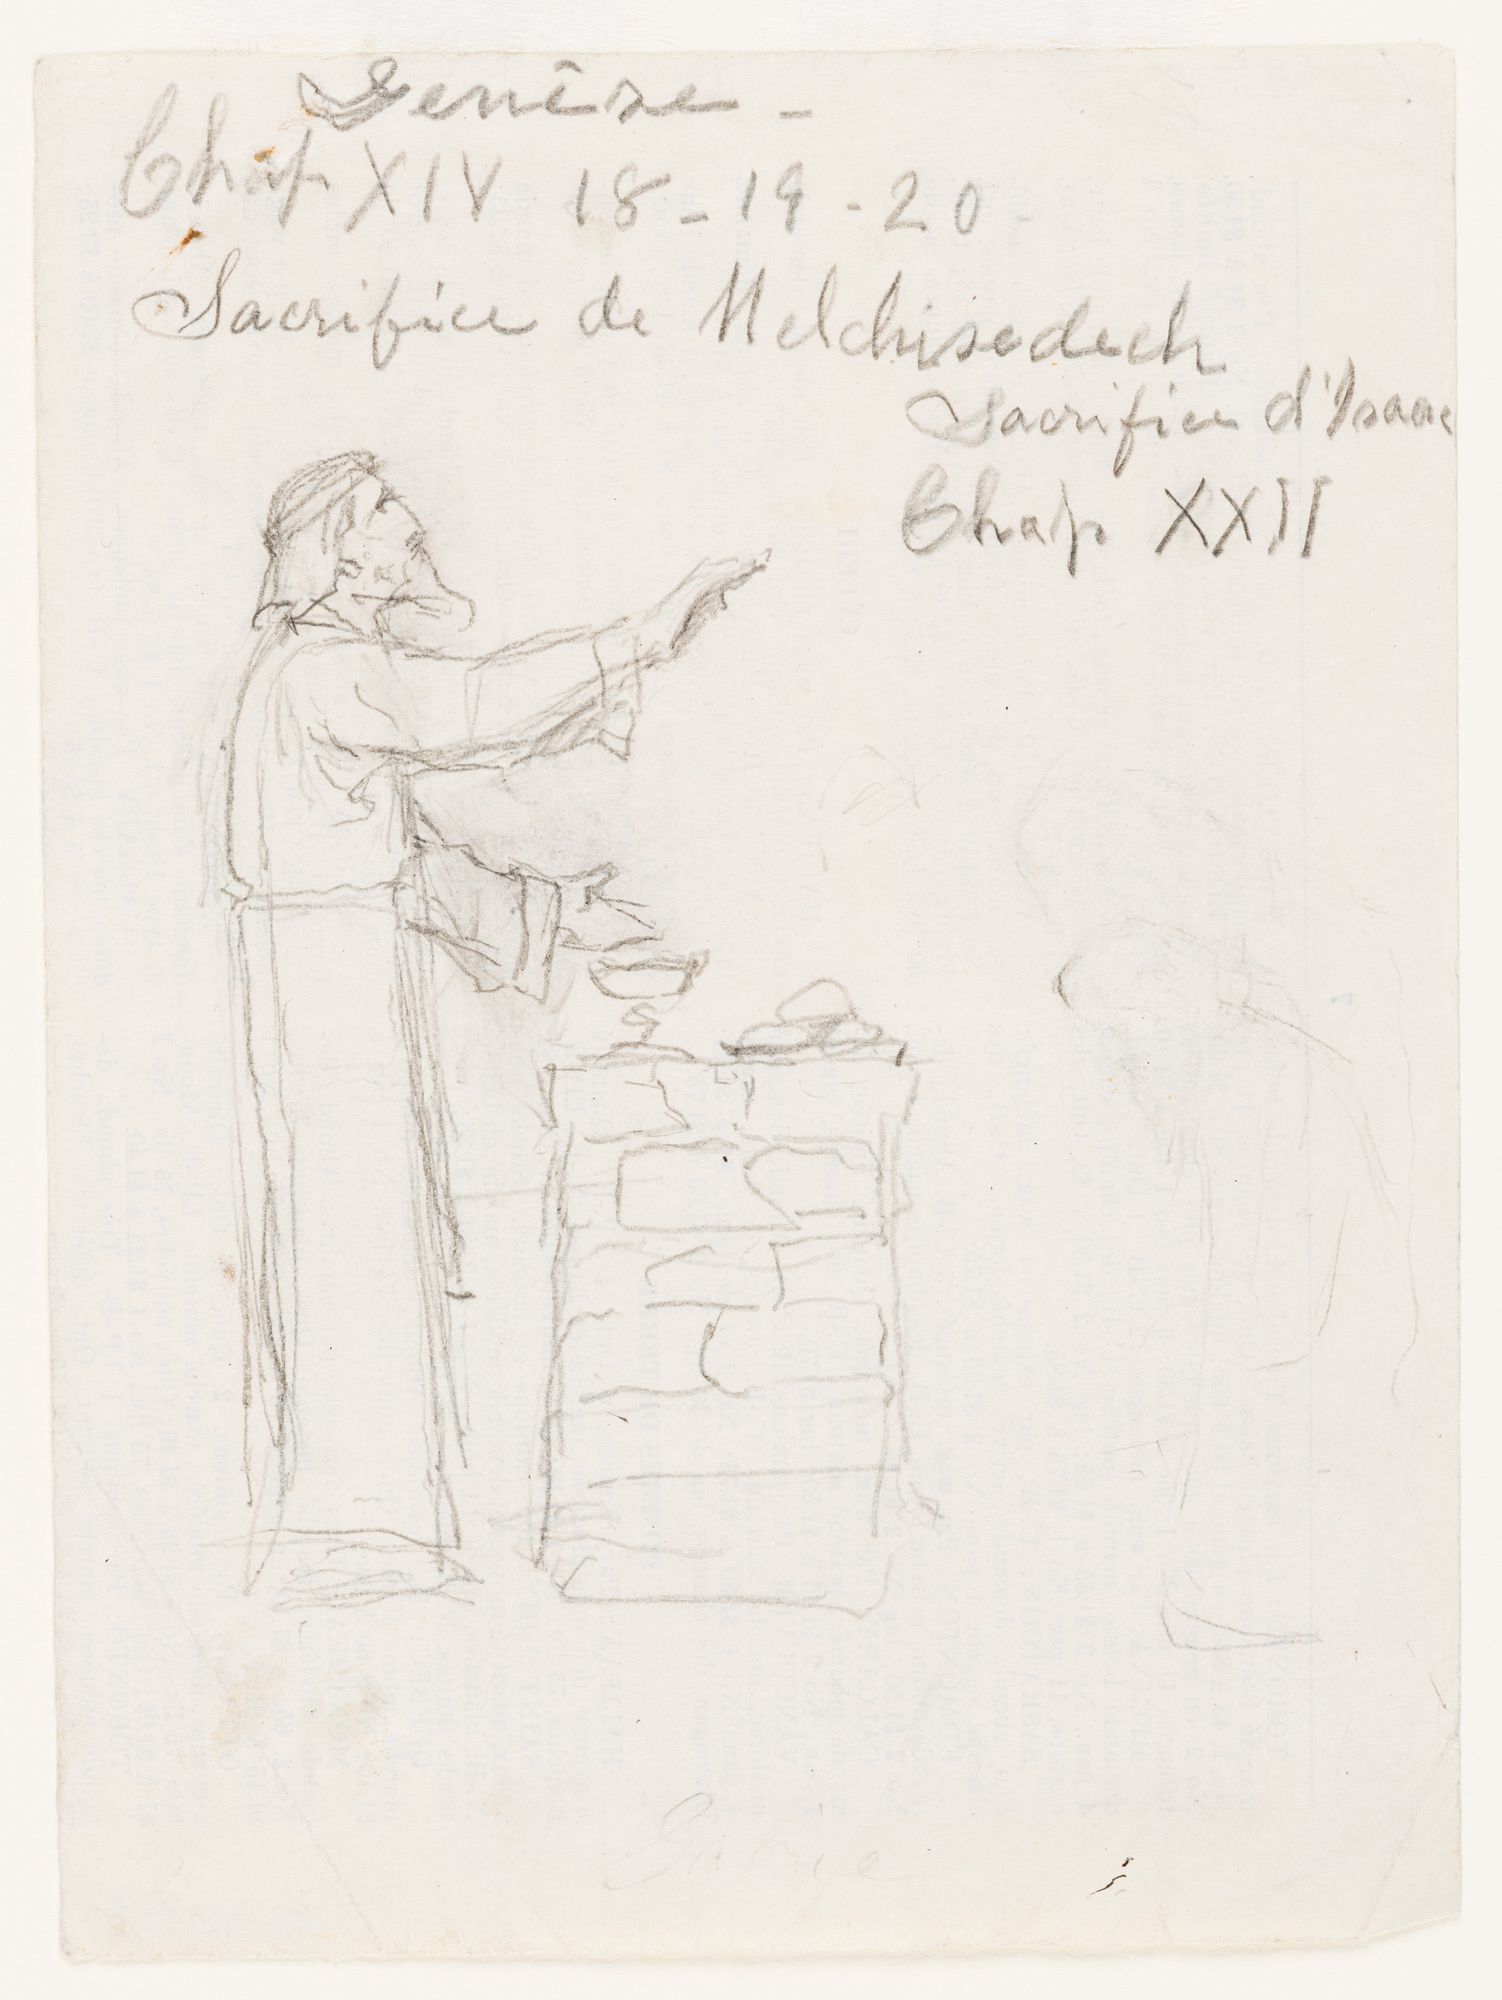 Genêse -
Chap XIV 18 - 19 - 20 -
Sacrifice de Melchisedech
Sacrifice d'Isaac
Chap XXII